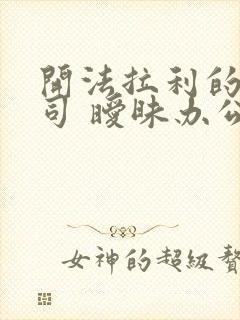 開法拉利的
司 曖昧办公
女神的超級贅